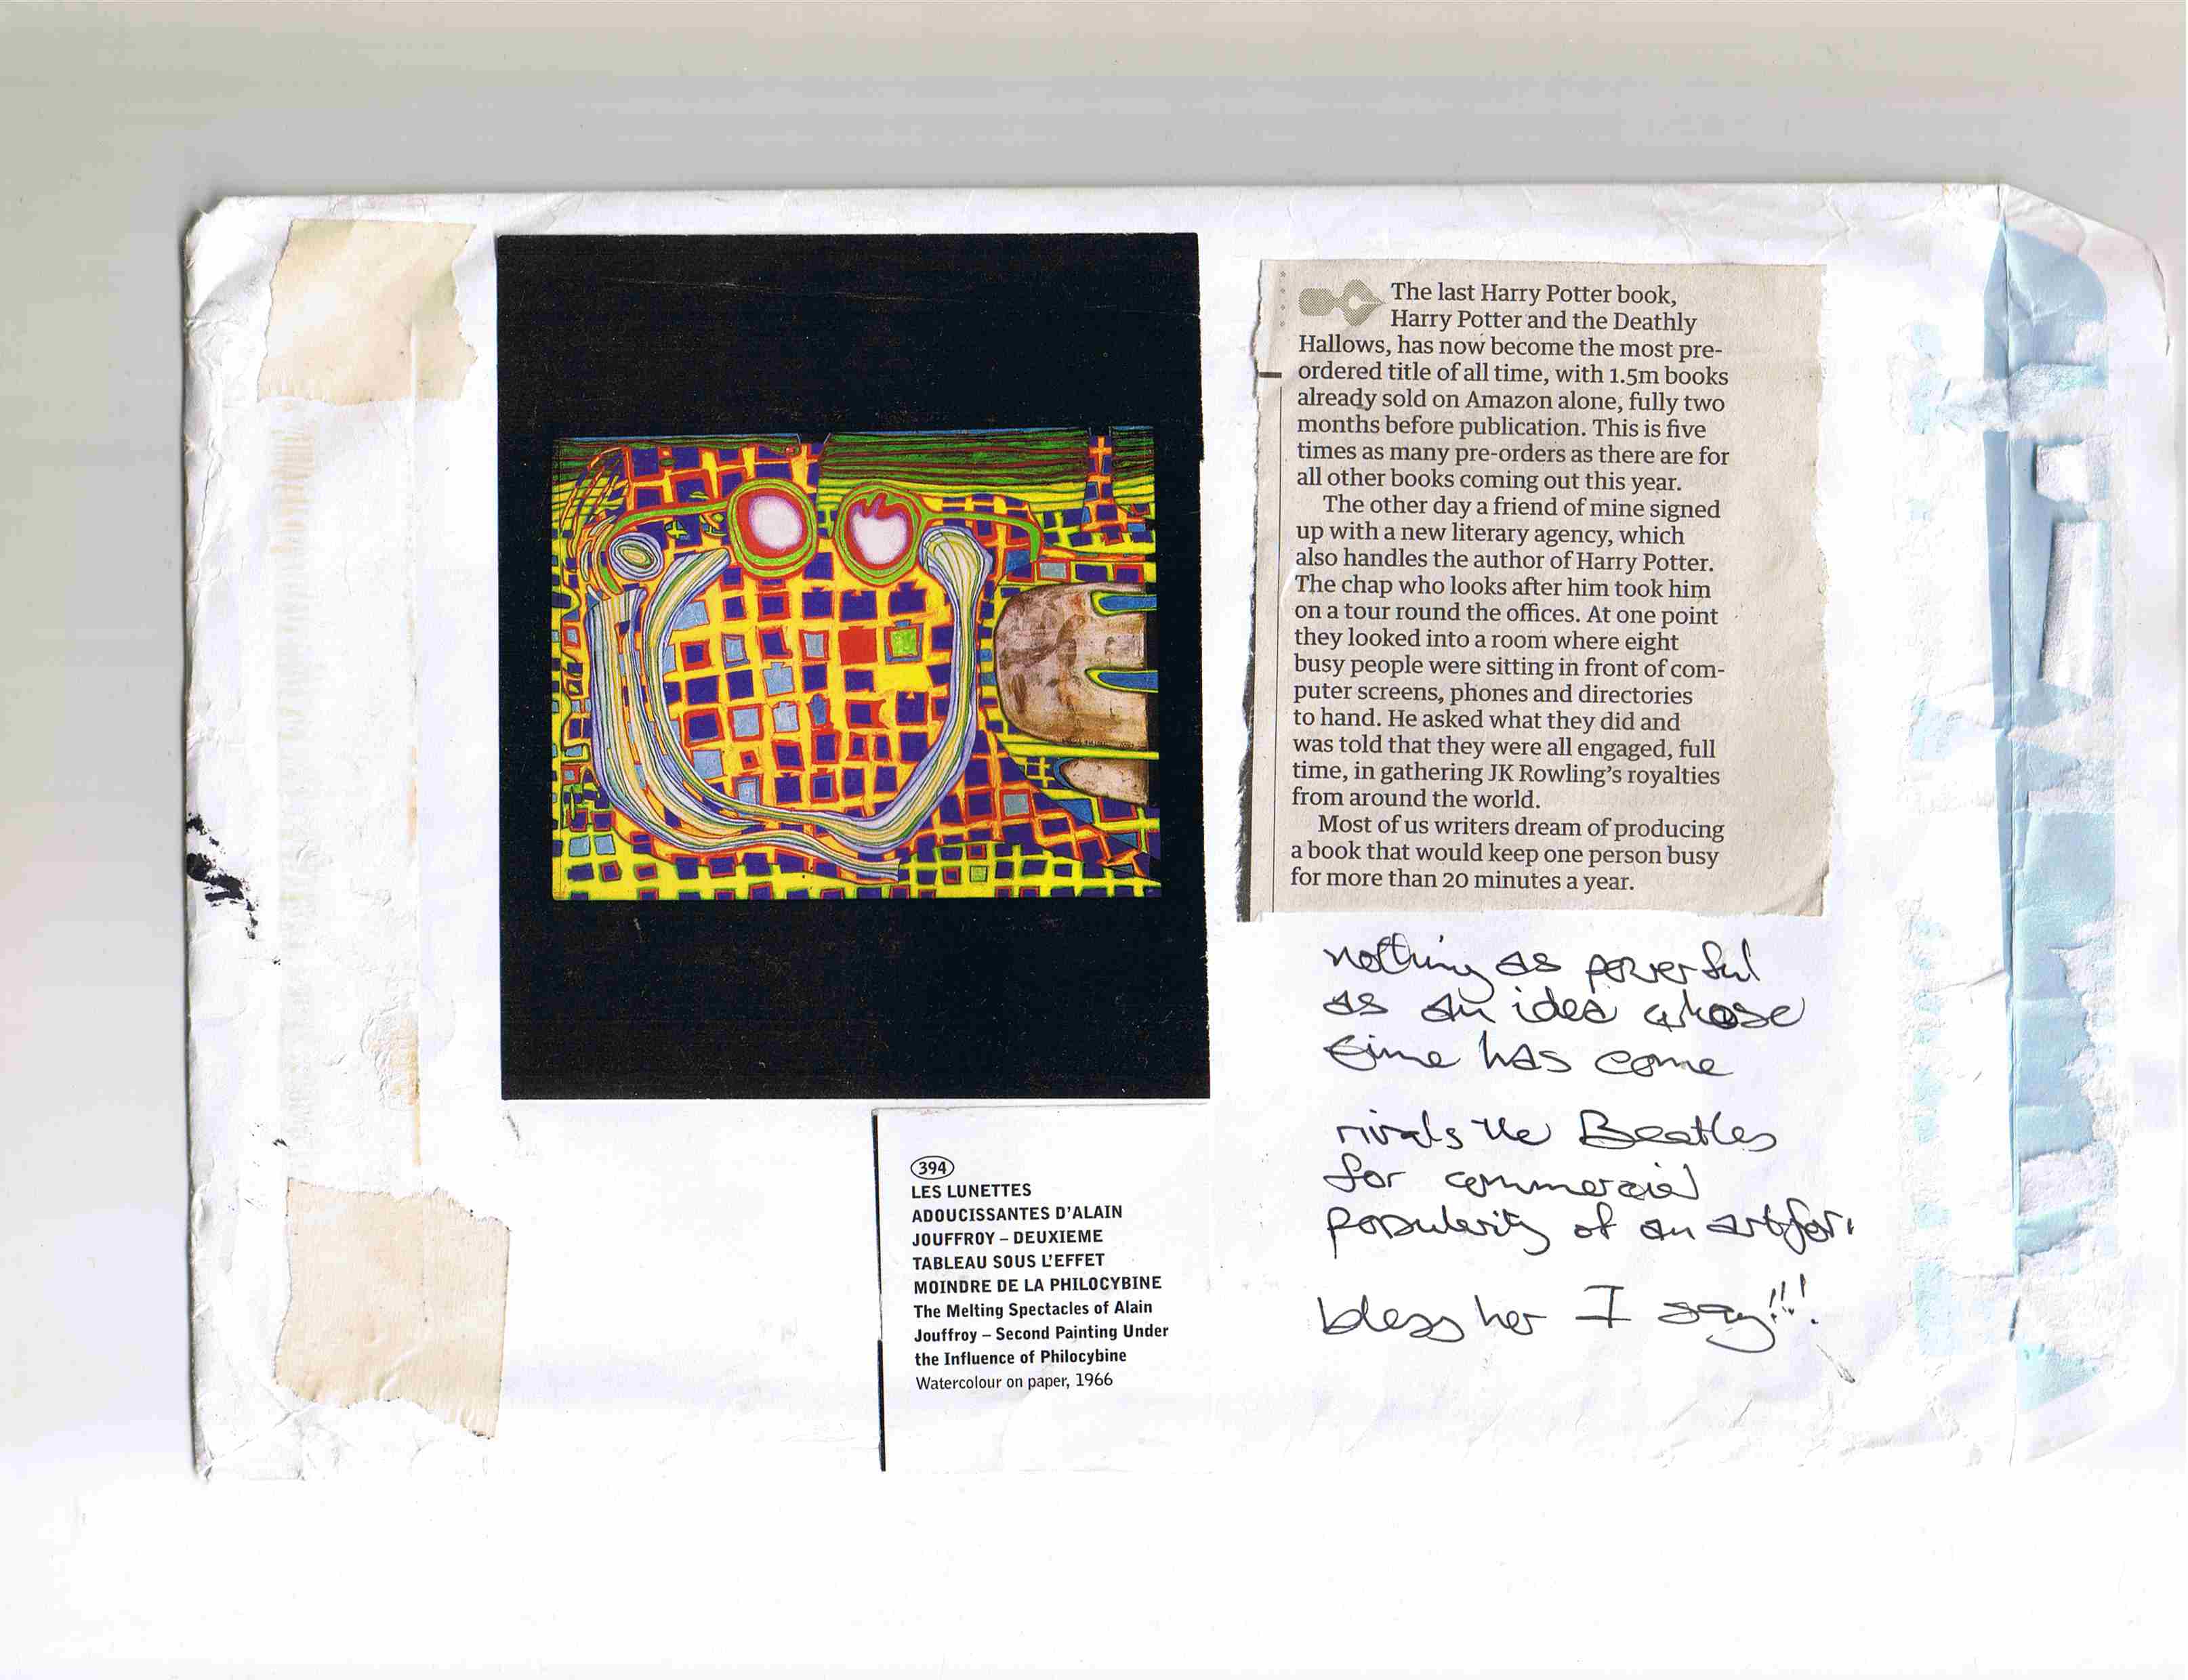 The last Harry Potter book,
Harry Potter and the Deathly
Hallows, has now become the most pre-
ordered title of all time, with 1.5m books
already sold on Amazon alone, fully two
months before publication. This is five
times as many pre-orders as there are for
all other books coming out this year.
The other day a friend of mine signed
up with a new literary agency, which
also handles the author of Harry Potter.
The chap who looks after him took him
on a tour round the offices. At one point
they looked into a room where eight
busy people were sitting in front of com-
puter screens, phones and directories
to hand. He asked what they did and
was told that they were all engaged, full
time, in gathering JK Rowling's royalties
from around the world.
Most of us writers dream of producing
a book that would keep one person busy
for more than 20 minutes a year.
nothing as powerful
as an idea whose
time has come
rivals the Beatles
for commercial
popularity of an artfor
bless her I say!!!
394
LES LUNETTES
ADOUCISSANTES D'ALAIN
JOUFFROY – DEUXIEME
TABLEAU SOUS L'EFFET
MOINDRE DE LA PHILOCYBINE
The Melting Spectacles of Alain
Jouffroy – Second Painting Under
the Influence of Philocybine
Watercolour on paper, 1966